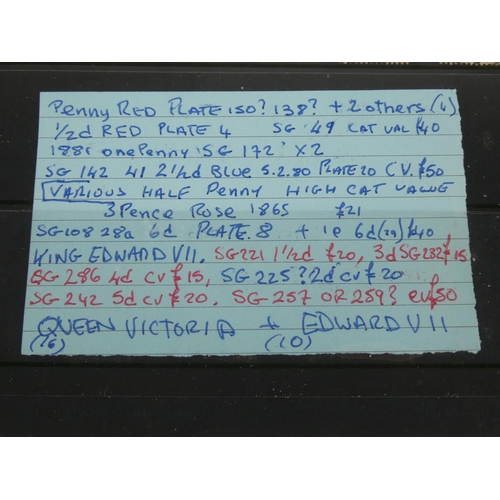 Penny RED PLATE 150? 138? + 2 others (4)
1/2d RED PLATE 4 SG 49 CAT VAL £40
1881 onePenny SG 172 X2
SG 142 41 2 1/2d BLUE 5.2.80 PLATE 20 C.V. £50
VARIOUS HALF PENNY HIGH CAT VALUE
3 Pence Rose 1865 £21
SG108 28a 6d PLATE.8 + 1e 6d(29) £40
KING EDWARD VII. SG221 1 1/2d £20, 3d SG232 £15
SG 286 4d CV £15, SG 225? 2d CV £20
SG 242 5d CV £20. SG 257 OR 259? CV £50
QUEEN VICTORIA + EDWARD VII
(16) (10)